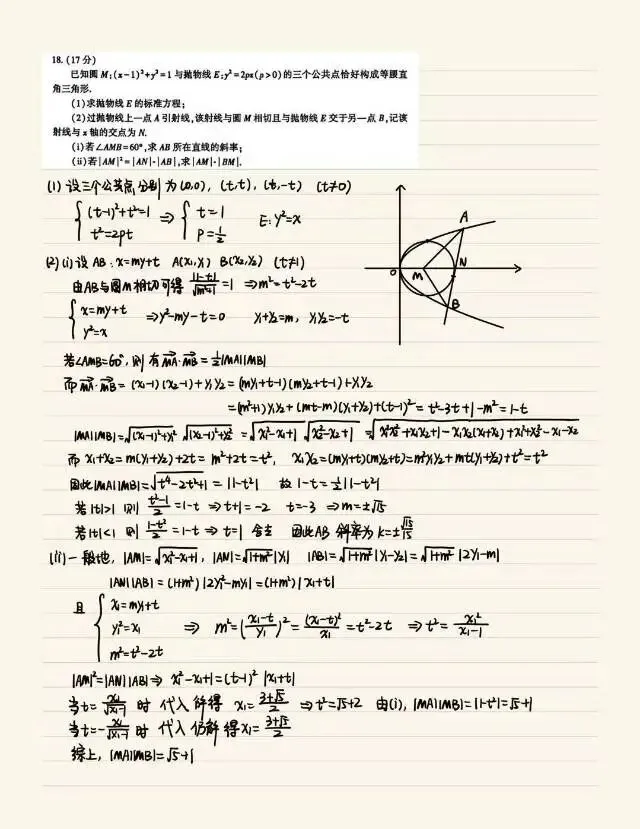 18.(17分)
已知圆 M:(x-1)²+y²=1 与抛物线 E:y²=2px(p>0)的三个公共点恰好构成等腰直
角三角形.
(1)求抛物线 E 的标准方程;
(2)过抛物线上一点 A 引射线,该射线与圆 M 相切且与抛物线 E 交于另一点 B,记该
射线与 x 轴的交点为 N.
(i)若∠AMB=60°,求 AB 所在直线的斜率;
(ii)若|AM|²=|AN|·|AB|,求|AM|·|BM|.
(1) 设三个公共点分别为(0,0), (t,t), (t,-t) (t≠0)
{ (t-1)²+t²=1 ⇒ { t=1
t²=2pt p=1/2 E: y²=x
(2)(i) 设 AB: x=my+t A(x₁,y₁) B(x₂,y₂) (t≠1)
由AB与圆M相切可得 |1-t|/√(m²+1) =1 ⇒ m²=t²-2t
{ x=my+t
y²=x ⇒ y²-my-t=0 y₁+y₂=m, y₁y₂=-t
若∠AMB=60°, 则有 MA·MB=½|MA||MB|
而 MA·MB=(x₁-1)(x₂-1)+y₁y₂=(my₁+t-1)(my₂+t-1)+y₁y₂
=(m²+1)y₁y₂+(mt-m)(y₁+y₂)+(t-1)²=t²-3t+1-m²=1-t
|MA||MB|=√((x₁-1)²+y₁²) √((x₂-1)²+y₂²)=√(x₁²-x₁+1) √(x₂²-x₂+1)=√(x₁²x₂²+x₁x₂+1-x₁x₂(x₁+x₂)+x₁²+x₂²-x₁-x₂)
而 x₁+x₂=m(y₁+y₂)+2t=m²+2t=t², x₁x₂=(my₁+t)(my₂+t)=m²y₁y₂+mt(y₁+y₂)+t²=t²
因此|MA||MB|=√(t⁴-2t²+1)=|1-t²| 故 1-t=½|1-t²|
若|t|>1 则 (t²-1)/2=1-t ⇒ t+1=-2 t=-3 ⇒ m=±√15
若|t|<1 则 (1-t²)/2=1-t ⇒ t=1 舍去 因此AB斜率为 k=±√15/15
(ii) 一般地, |AM|=√(x₁²-x₁+1), |AN|=√(1+m²)|y₁| |AB|=√(1+m²)|y₁-y₂|=√(1+m²)|2y₁-m|
|AN||AB|=(1+m²)|2y₁²-my₁|=(1+m²)|x₁+t|
且 { x₁=my₁+t
y₁²=x₁ ⇒ m²=((x₁-t)/y₁)²=(x₁-t)²/x₁=t²-2t ⇒ t²=x₁²/(x₁-1)
m²=t²-2t
|AM|²=|AN||AB| ⇒ x₁²-x₁+1=(t-1)²|x₁+t|
当t=x₁/√(x₁-1) 时 代入解得 x₁=(3+√5)/2 ⇒ t²=√5+2 由(i), |MA||MB|=|1-t²|=√5+1
当t=-x₁/√(x₁-1) 时 代入仍解得x₁=(3+√5)/2
综上, |MA||MB|=√5+1
A
O
M
N
B